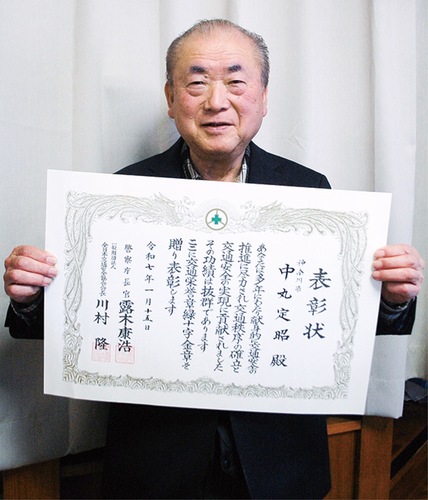 表彰状
神奈川県
中丸定昭 殿
あなたは多年にわたり献身的に交通安全の
推進に尽力され交通秩序の確立と
交通安全の実現に貢献されました
その功績は抜群であります
ここに交通栄誉章緑十字金章を
贈り表彰します
令和七年一月十五日
警察庁長官 露木康浩
一般財団法人
全日本交通安全協会会長
川村 隆